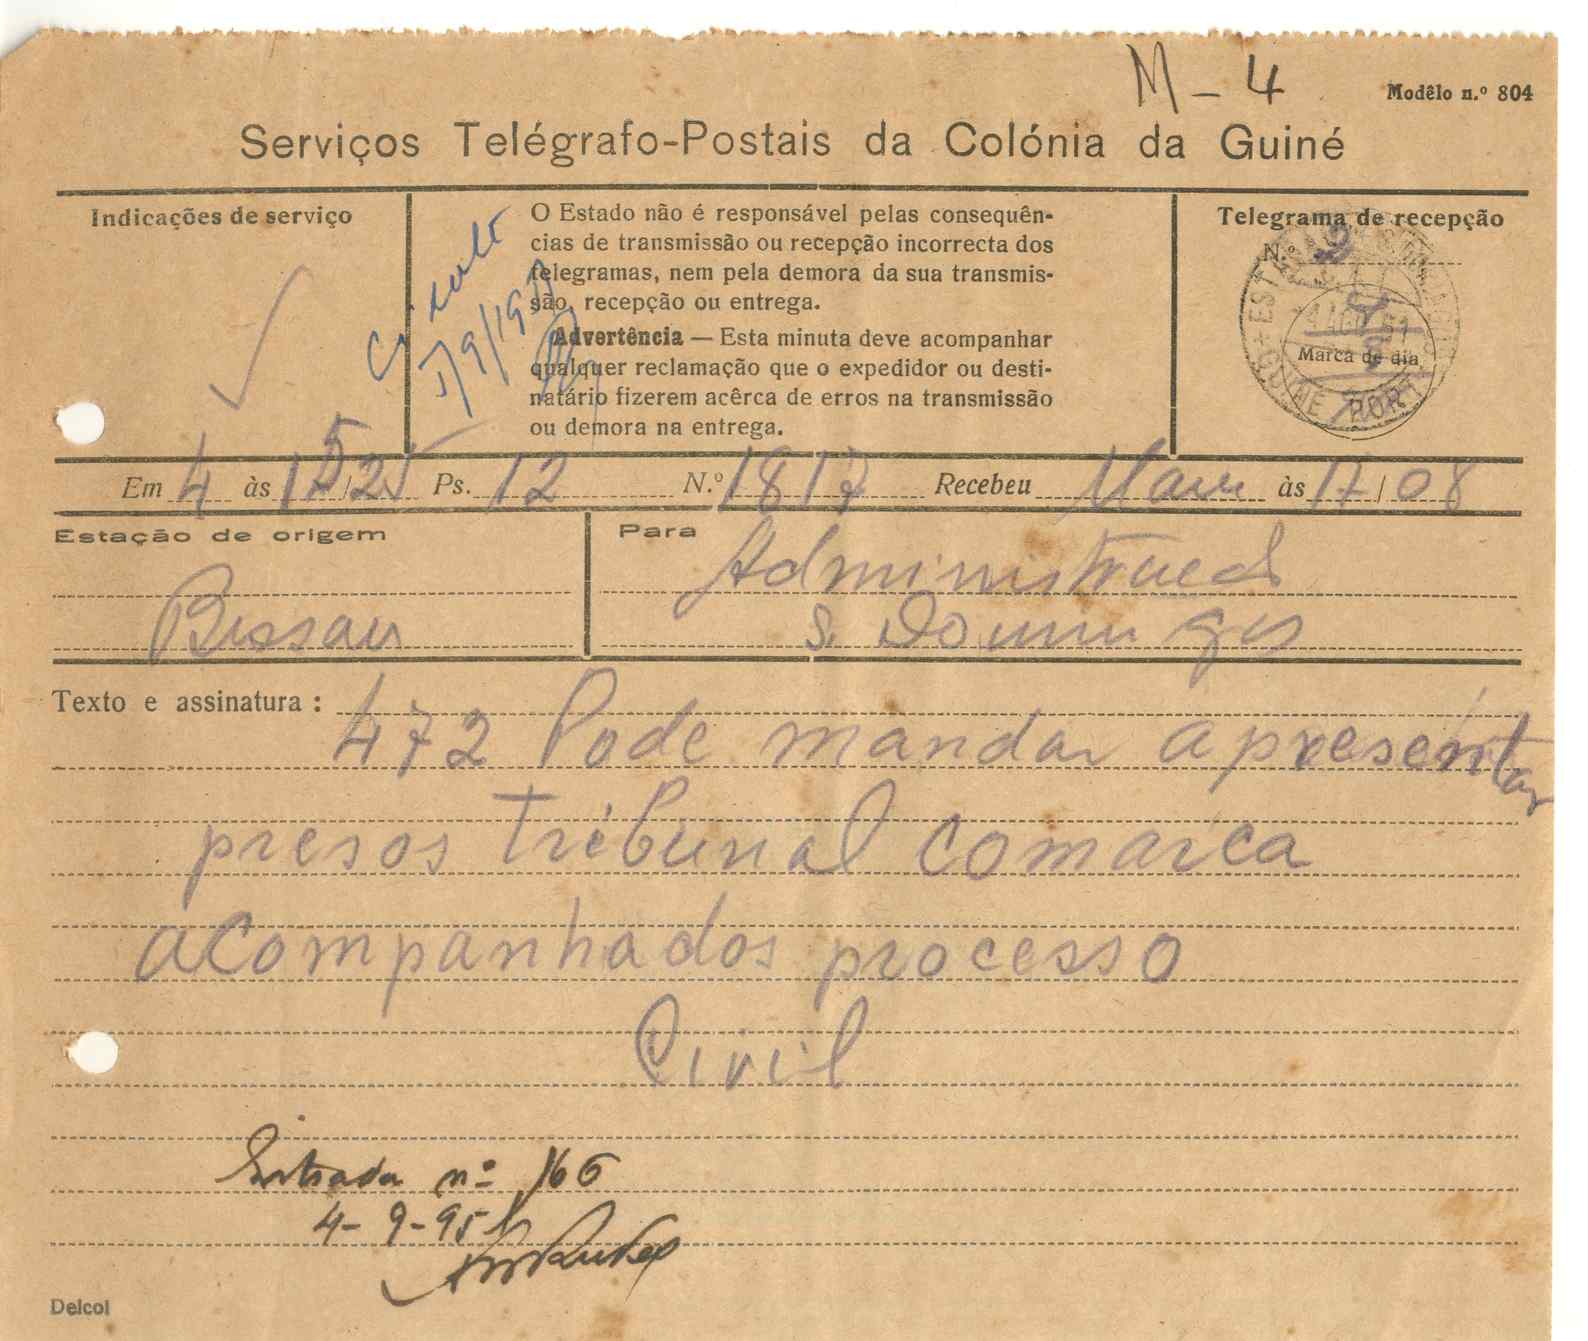 M - 4
Modêlo n.º 804
Serviços Telégrafo-Postais da Colónia da Guiné
Indicações de serviço
5/9/951
O Estado não é responsável pelas consequên-
cias de transmissão ou recepção incorrecta dos
telegramas, nem pela demora da sua transmis-
são, recepção ou entrega.
Advertência — Esta minuta deve acompanhar
qualquer reclamação que o expedidor ou desti-
natário fizerem acêrca de erros na transmissão
ou demora na entrega.
Telegrama de recepção
N.º 2
Marca de dia
GUINÉ PORT
Em 4 às 15/25 Ps. 12 N.º 1817 Recebeu às 17/08
Estação de origem
Bissau
Para
S. Domingos
Texto e assinatura:
472 Pode mandar apresentar
presos tribunal comarca
acompanhados processo
Civil
Entrada nº 166
4-9-951
Delcol